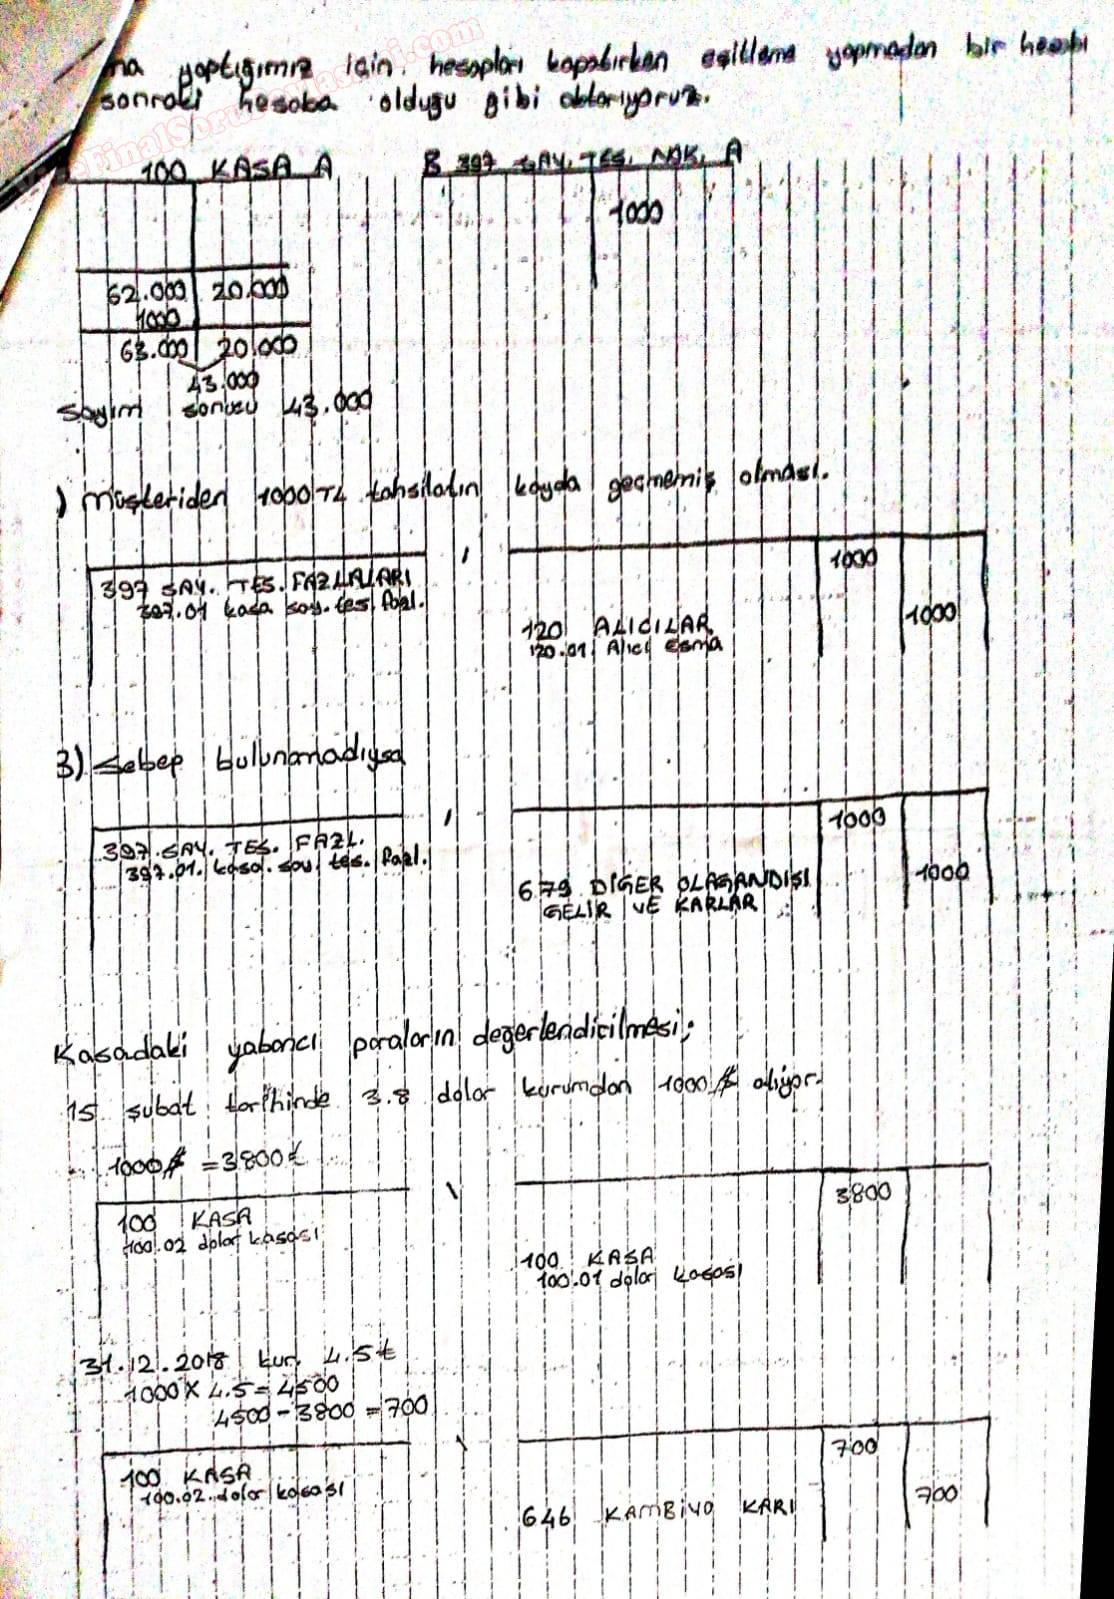 ma yaptığımız için. hesapları kapatırken eşitleme yapmadan bir hesabı
sonraki hesaba olduğu gibi aktarıyoruz.
100 KASA A
B 397 SAY. TES. NOK. A
1000
62.000 20.000
1000
63.000 20.000
43.000
Sayım sonucu 43.000
) Müşteriden 1000 TL tahsilatın kayda geçmemiş olması.
397 SAY. TES. FAZLALARI
397.01 kasa say. tes. fazl.
1000
120 ALICILAR
120.01. Alıcı Esma
1000
3) Sebep bulunamadıysa
397. SAY. TES. FAZL.
397.01. kasa. say. tes. fazl.
1000
679 DİĞER OLAGANDIŞI
GELİR VE KARLAR
1000
Kasadaki yabancı paraların değerlendirilmesi;
15 şubat tarihinde 3.8 dolar kurumdan 1000 $ alıyor.
1000 $ = 3800 ₺
100 KASA
100.02 dolar kasası
3800
100 KASA
100.01 dolar kasası
31.12.2018 kur. 4.5 ₺
1000 X 4.5 = 4500
4500 - 3800 = 700
100 KASA
100.02. dolar kasası
700
646 KAMBİYO KARI
700